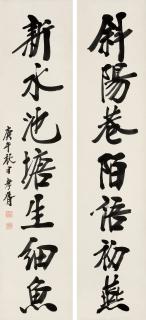 斜陽巷陌語初燕
新水池塘生細魚
庚午秋日孝胥